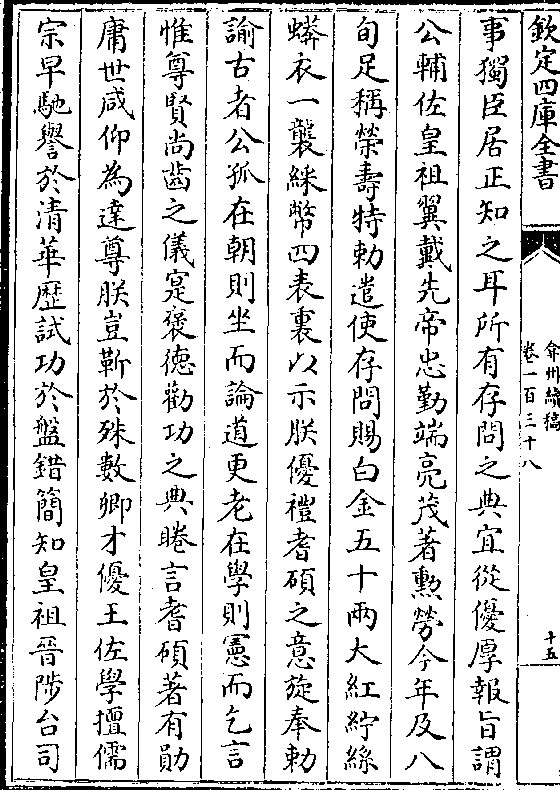 欽定四庫全書
弇州續稿
卷一百三十八
十五
事獨臣居正知之耳所有存問之典宜從優厚報旨謂
公輔佐皇祖翼戴先帝忠勤端亮茂著勲勞今年及八
旬足稱榮壽特勅遣使存問賜白金五十兩大紅紵絲
蟒衣一襲綵幣四表裏以示朕優禮耆碩之意旋奉勅
諭古者公孤在朝則坐而論道更老在學則憲而乞言
惟尊賢尚齒之儀寔褒德勸功之典睠言耆碩著有勛
庸世咸仰為達尊朕豈靳於殊數卿才優王佐學擅儒
宗早馳譽於清華歷試功於盤錯簡知皇祖晉陟台司